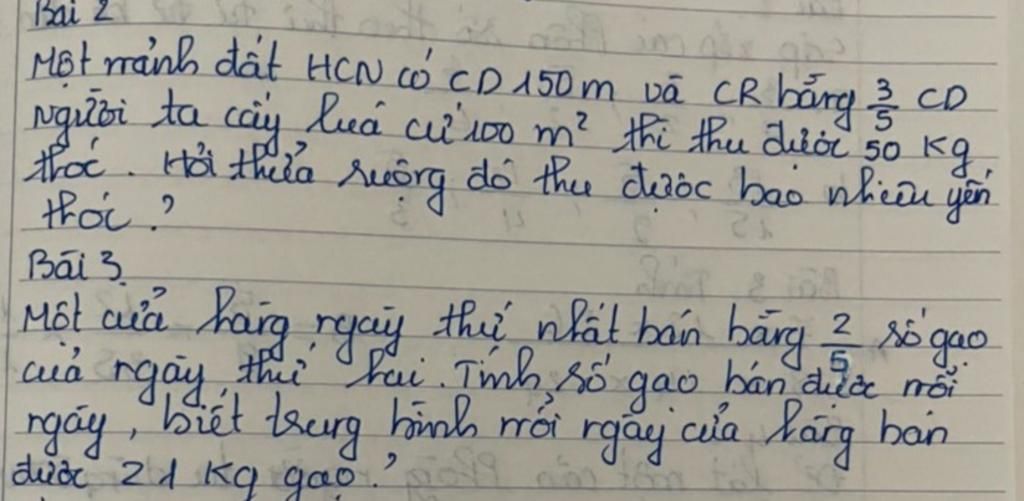 Bài 2
Một mảnh đất HCN có CD 150m và CR bằng 3/5 CD
Người ta cấy luá cứ 100 m² thì thu được 50 Kg
thóc. Hỏi thửa ruộng đó thu được bao nhiêu yến
thóc?
Bài 3.
Một cửa hàng ngày thứ nhất bán bằng 2/5 số gạo
của ngày thứ hai. Tính số gạo bán được mỗi
ngày, biết trung bình mỗi ngày cửa hàng bán
được 21 Kg gạo?